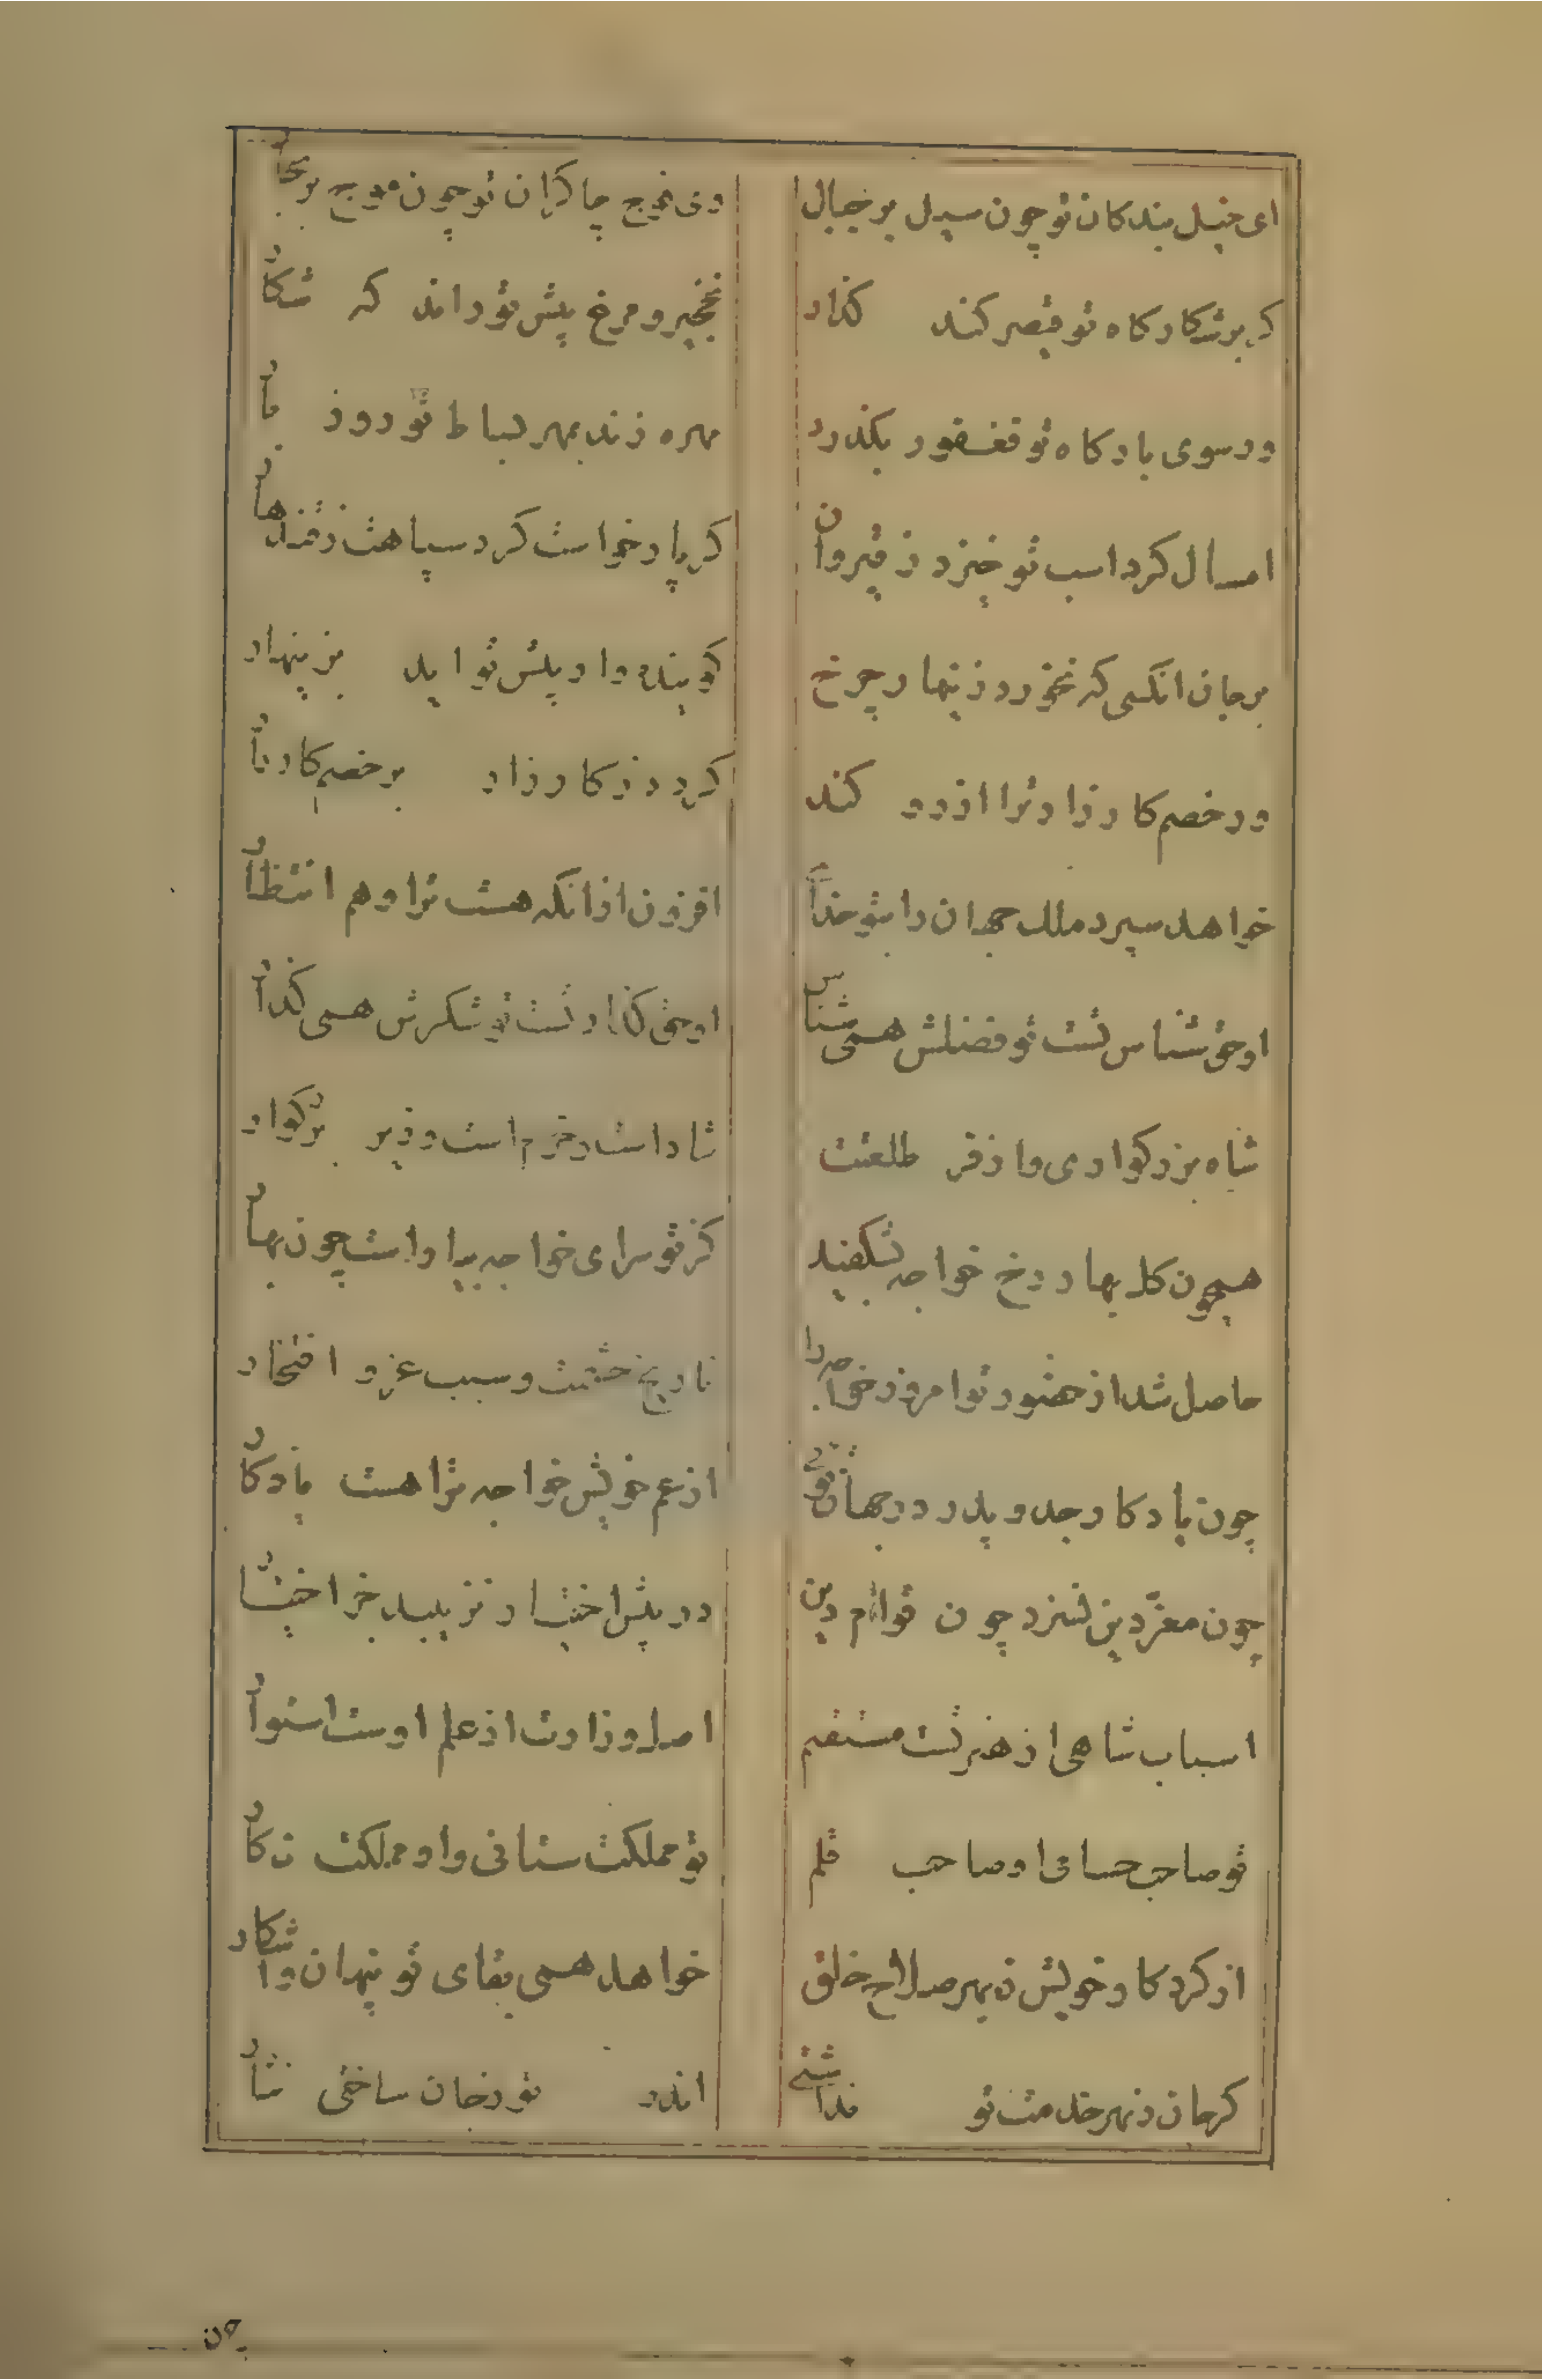 ای خیل بندکان تو چون سیل بر جبال
وی فوج چاکران تو چون موج بر بحار
کر بر شکارکاه تو قیصر کند کذار
نخجیر و مرغ پیش تو راند که شکار
ور سوی بارکاه تو فغفور بکذرد
مهره زند بمهر بساط تو روز بار
امسال کرد اسب تو خیزد ز قیروان
کر پار خواست کرد سپاهت ز قندهار
بر جان انکسی که نخورد زینهار چرخ
کو بنده وار پیش تو اید بزینهار
ور خصم کارزار ترا ارزو کند
کردد ز کارزار بر خصم کار زار
خواهد سپرد ملک جهان را بتو خدا
افزون ازانکه هست ترا وهم انتظار
او حق شناس تست تو فضلش همی شناس
او حق کذار تست تو شکرش همی کذار
شاه بزرکواری و از فر طلعتت
شاد است و خرم است وزیر بزرکوار
همچون کل بهار رخ خواجه بشکفید
کز تو سرای خواجه بیاراست چون بهار
حاصل شد از حضور تو امروز خواجه را
تاریخ حشمت و سبب عز و افتخار
چون یادکار جد و پدر در جهان توئی
از عم خویش خواجه ترا هست یادکار
چون معز دین نسزد چون قوام دین
در پیش اختیار نزیبد جز اختیار
اسباب شاهی از هنر تست مستقیم
اصل وزارت از علم اوست استوار
تو صاحب حسامی او صاحب قلم
تو مملکت ستانی و او مملکت نکار
از کردکار خویش ز بهر صلاح خلق
خواهد همی بقای تو پنهان و اشکار
کر جان ز بهر خدمت تو نداشتی
اندر تو رخان ساختی نثار
چون